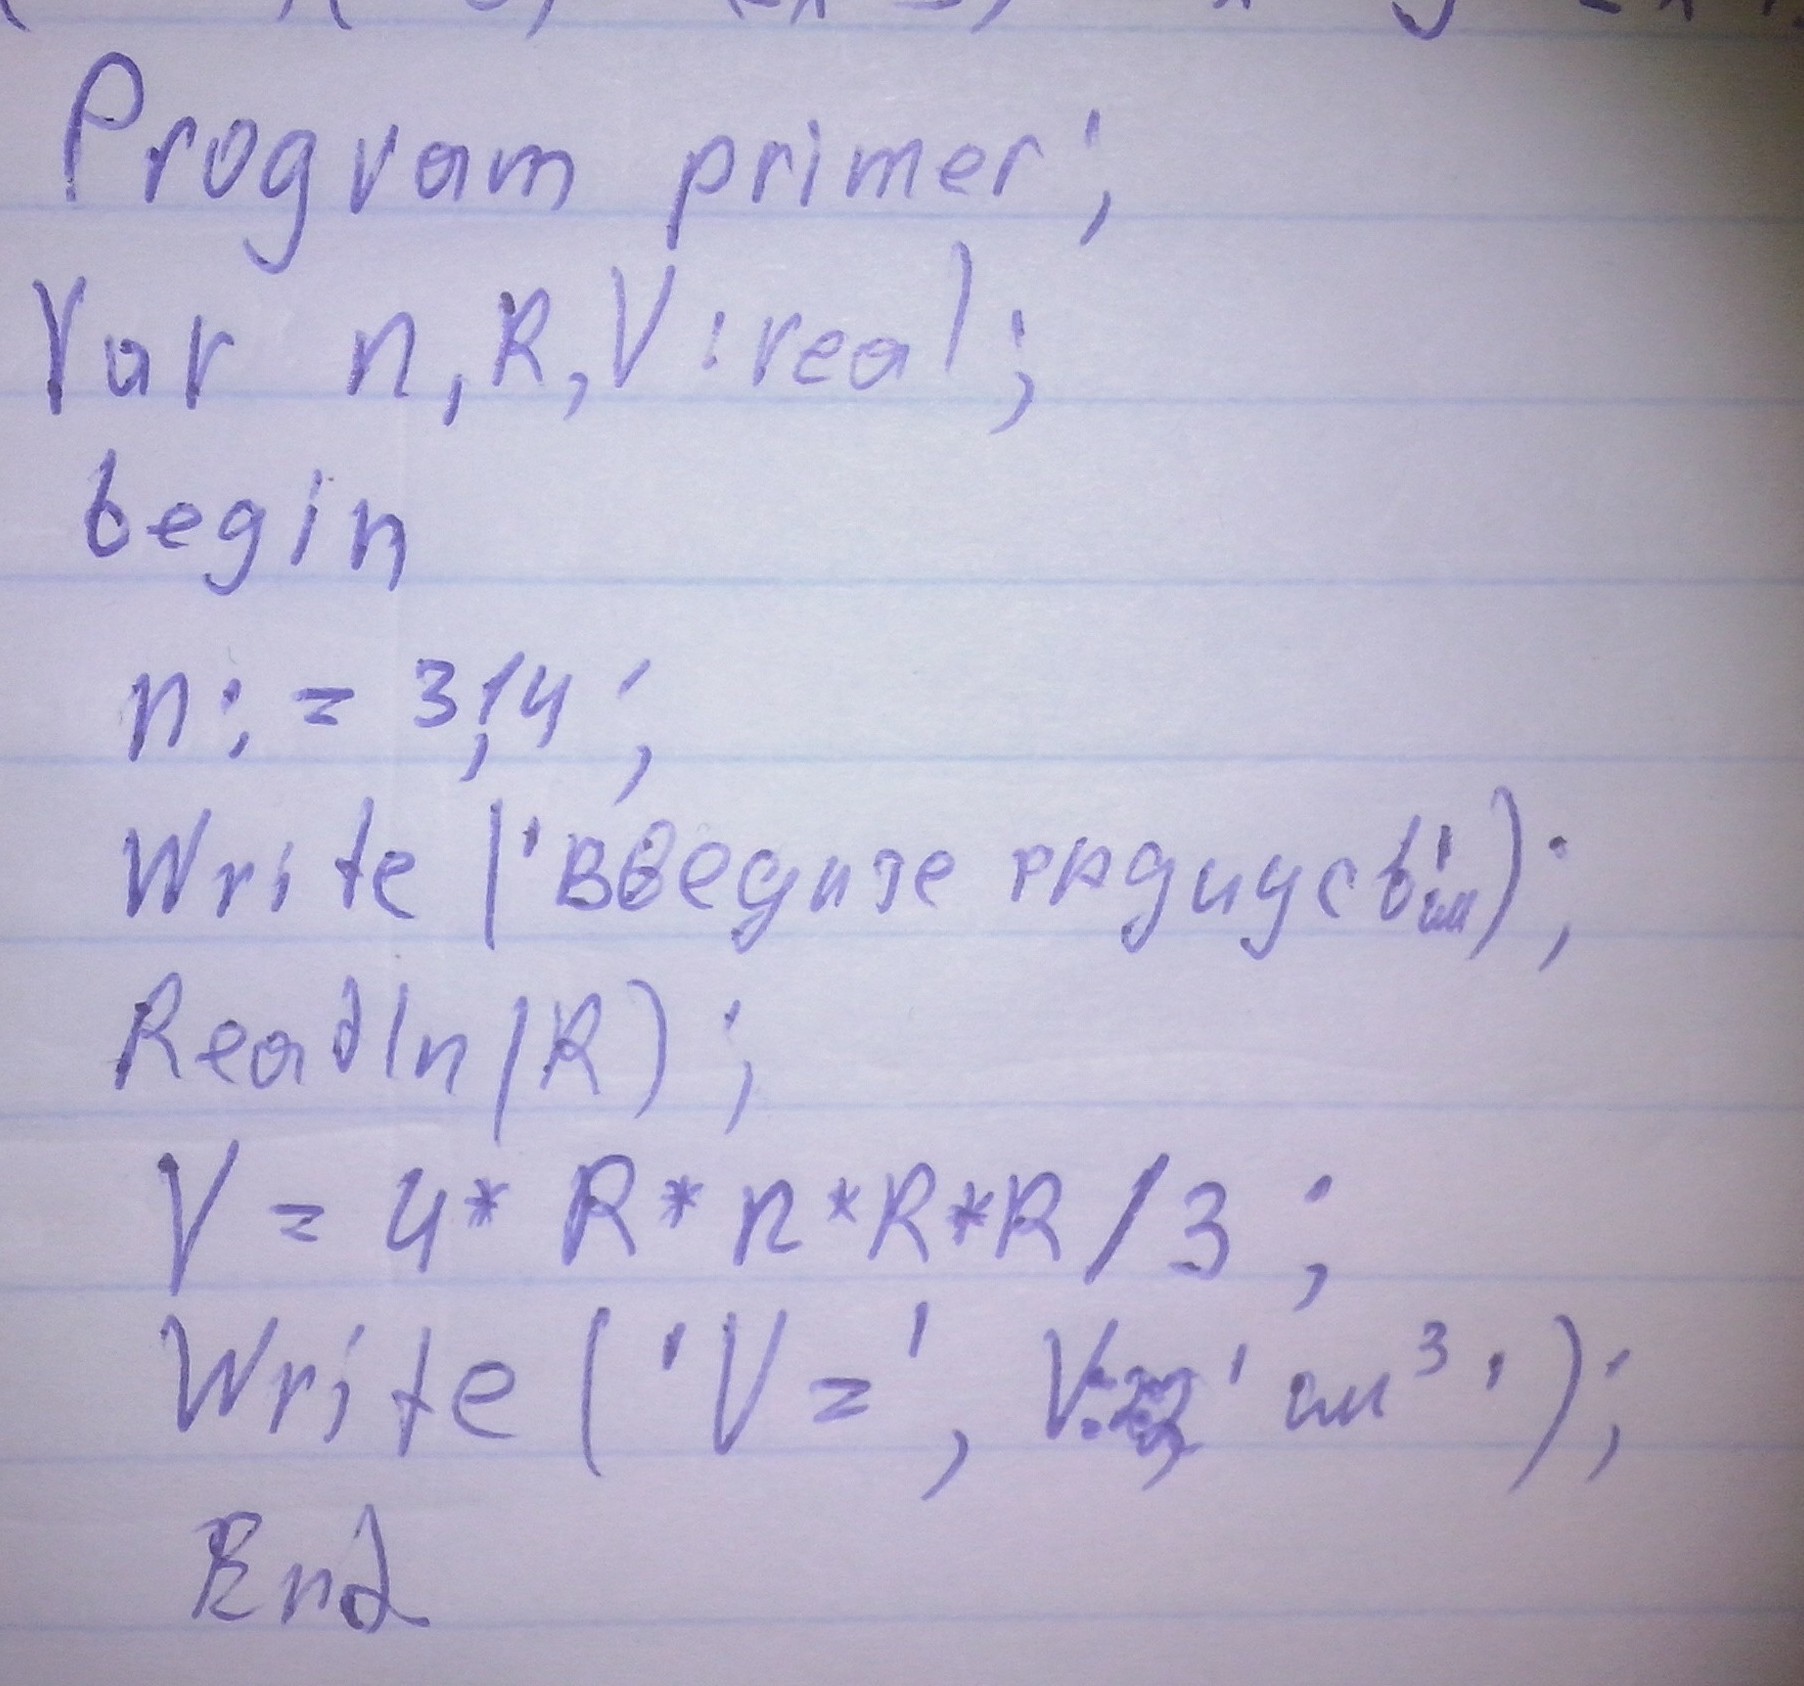 Program primer;
Var n, R, V : real;
begin
n := 3,14;
Write ('Введите радиус в' см);
Readln (R);
V = 4 * R * n * R * R / 3;
Write ('V =', V ' см³ ');
End